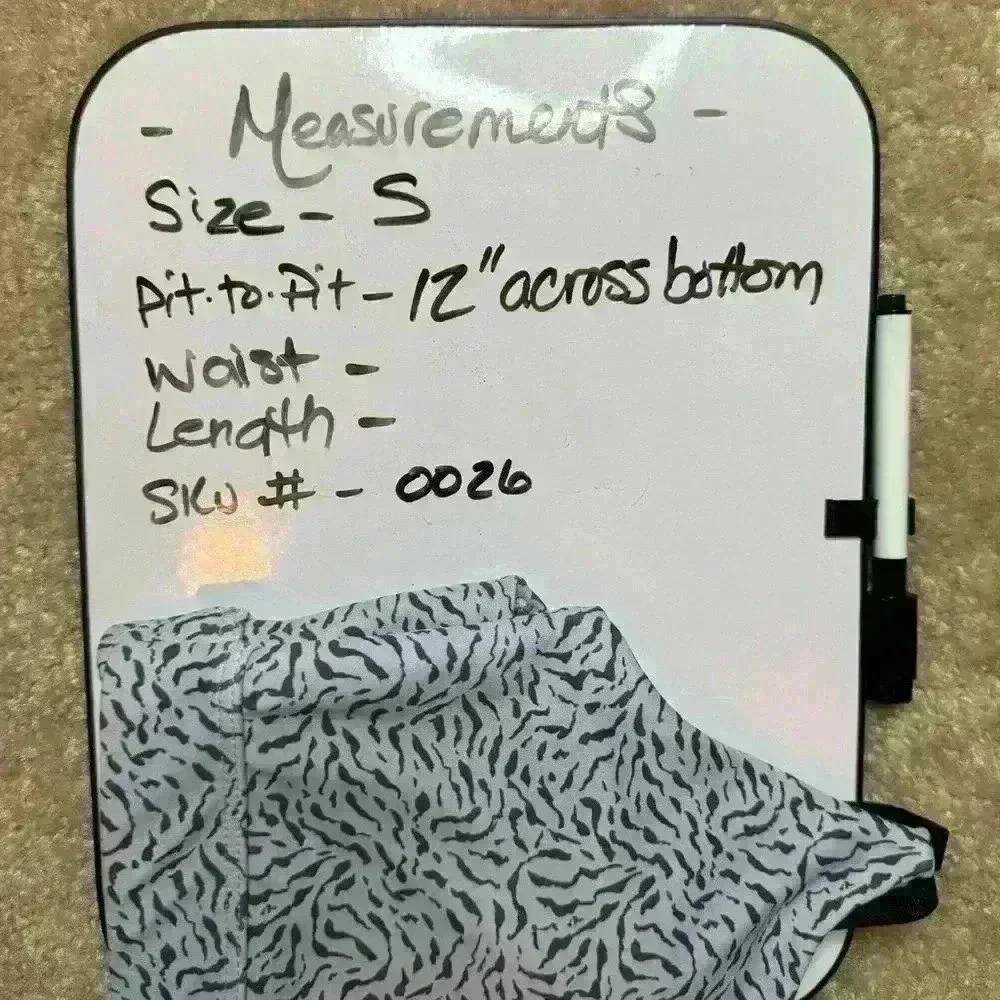 - Measurements -
Size - S
Pit.to.Pit - 12" across bottom
Waist -
Length -
SKU # - 0026